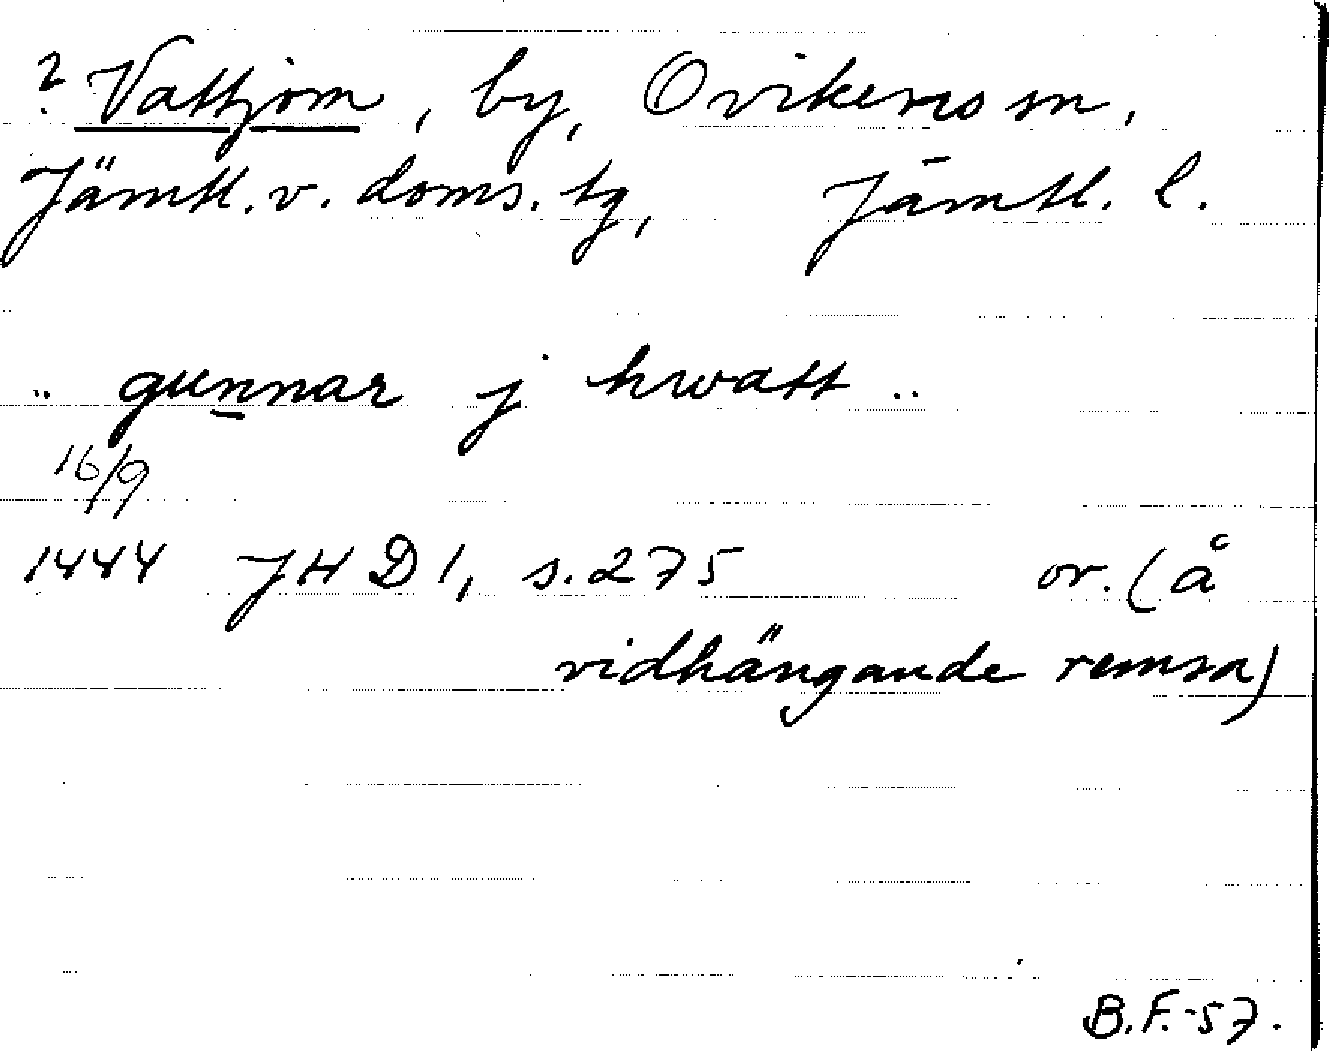 ? Vattjom, by, Ovikens sn,
Jämtl. v. doms. tg, Jämtl. l.
.. gunnar j hwatt ..
16/9
1444 JHD 1, s. 275 or. (å
vidhängande remsa)
B.F.-57.